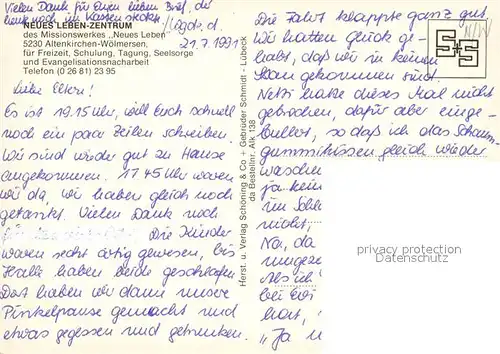 Vielen Dank für Euren lieben Brief, der
heute noch im Kasten steckte!
NEUES LEBEN-ZENTRUM
des Missionswerkes „Neues Leben"
5230 Altenkirchen-Wölmersen,
für Freizeit, Schulung, Tagung, Seelsorge
und Evangelisationsnacharbeit
Telefon (0 26 81) 23 95
21.7.1991
Liebe Eltern!
Es ist 19.15 Uhr, will Euch schnell
noch ein paar Zeilen schreiben.
Wir sind wieder gut zu Hause
angekommen. 17.45 Uhr waren
wir da, wir haben gleich noch
getankt. Vielen Dank noch
für Die Kinder
waren recht artig gewesen, bis
Halle haben beide geschlafen
Dort haben wir dann unsere
Pinkelpause gemacht und
etwas gegessen und getrunken.
Herst. u. Verlag Schöning & Co + Gebrüder Schmidt - Lübeck
da Bestellnr. Alk 138
Die Fahrt klappte ganz gut,
wir hatten Glück ge-
habt, daß wir in keinen
Stau gekommen sind.
hatte dieses Mal nicht
gebrochen, dafür aber einge-
bullert, so daß ich das Schaum-
gummikissen gleich wieder
waschen
ja kein
im Schl
nicht,
Na, da
umgezo
Als ich
bei Evi
hat,
"Ja u
S+S
privacy protection
Datenschutz